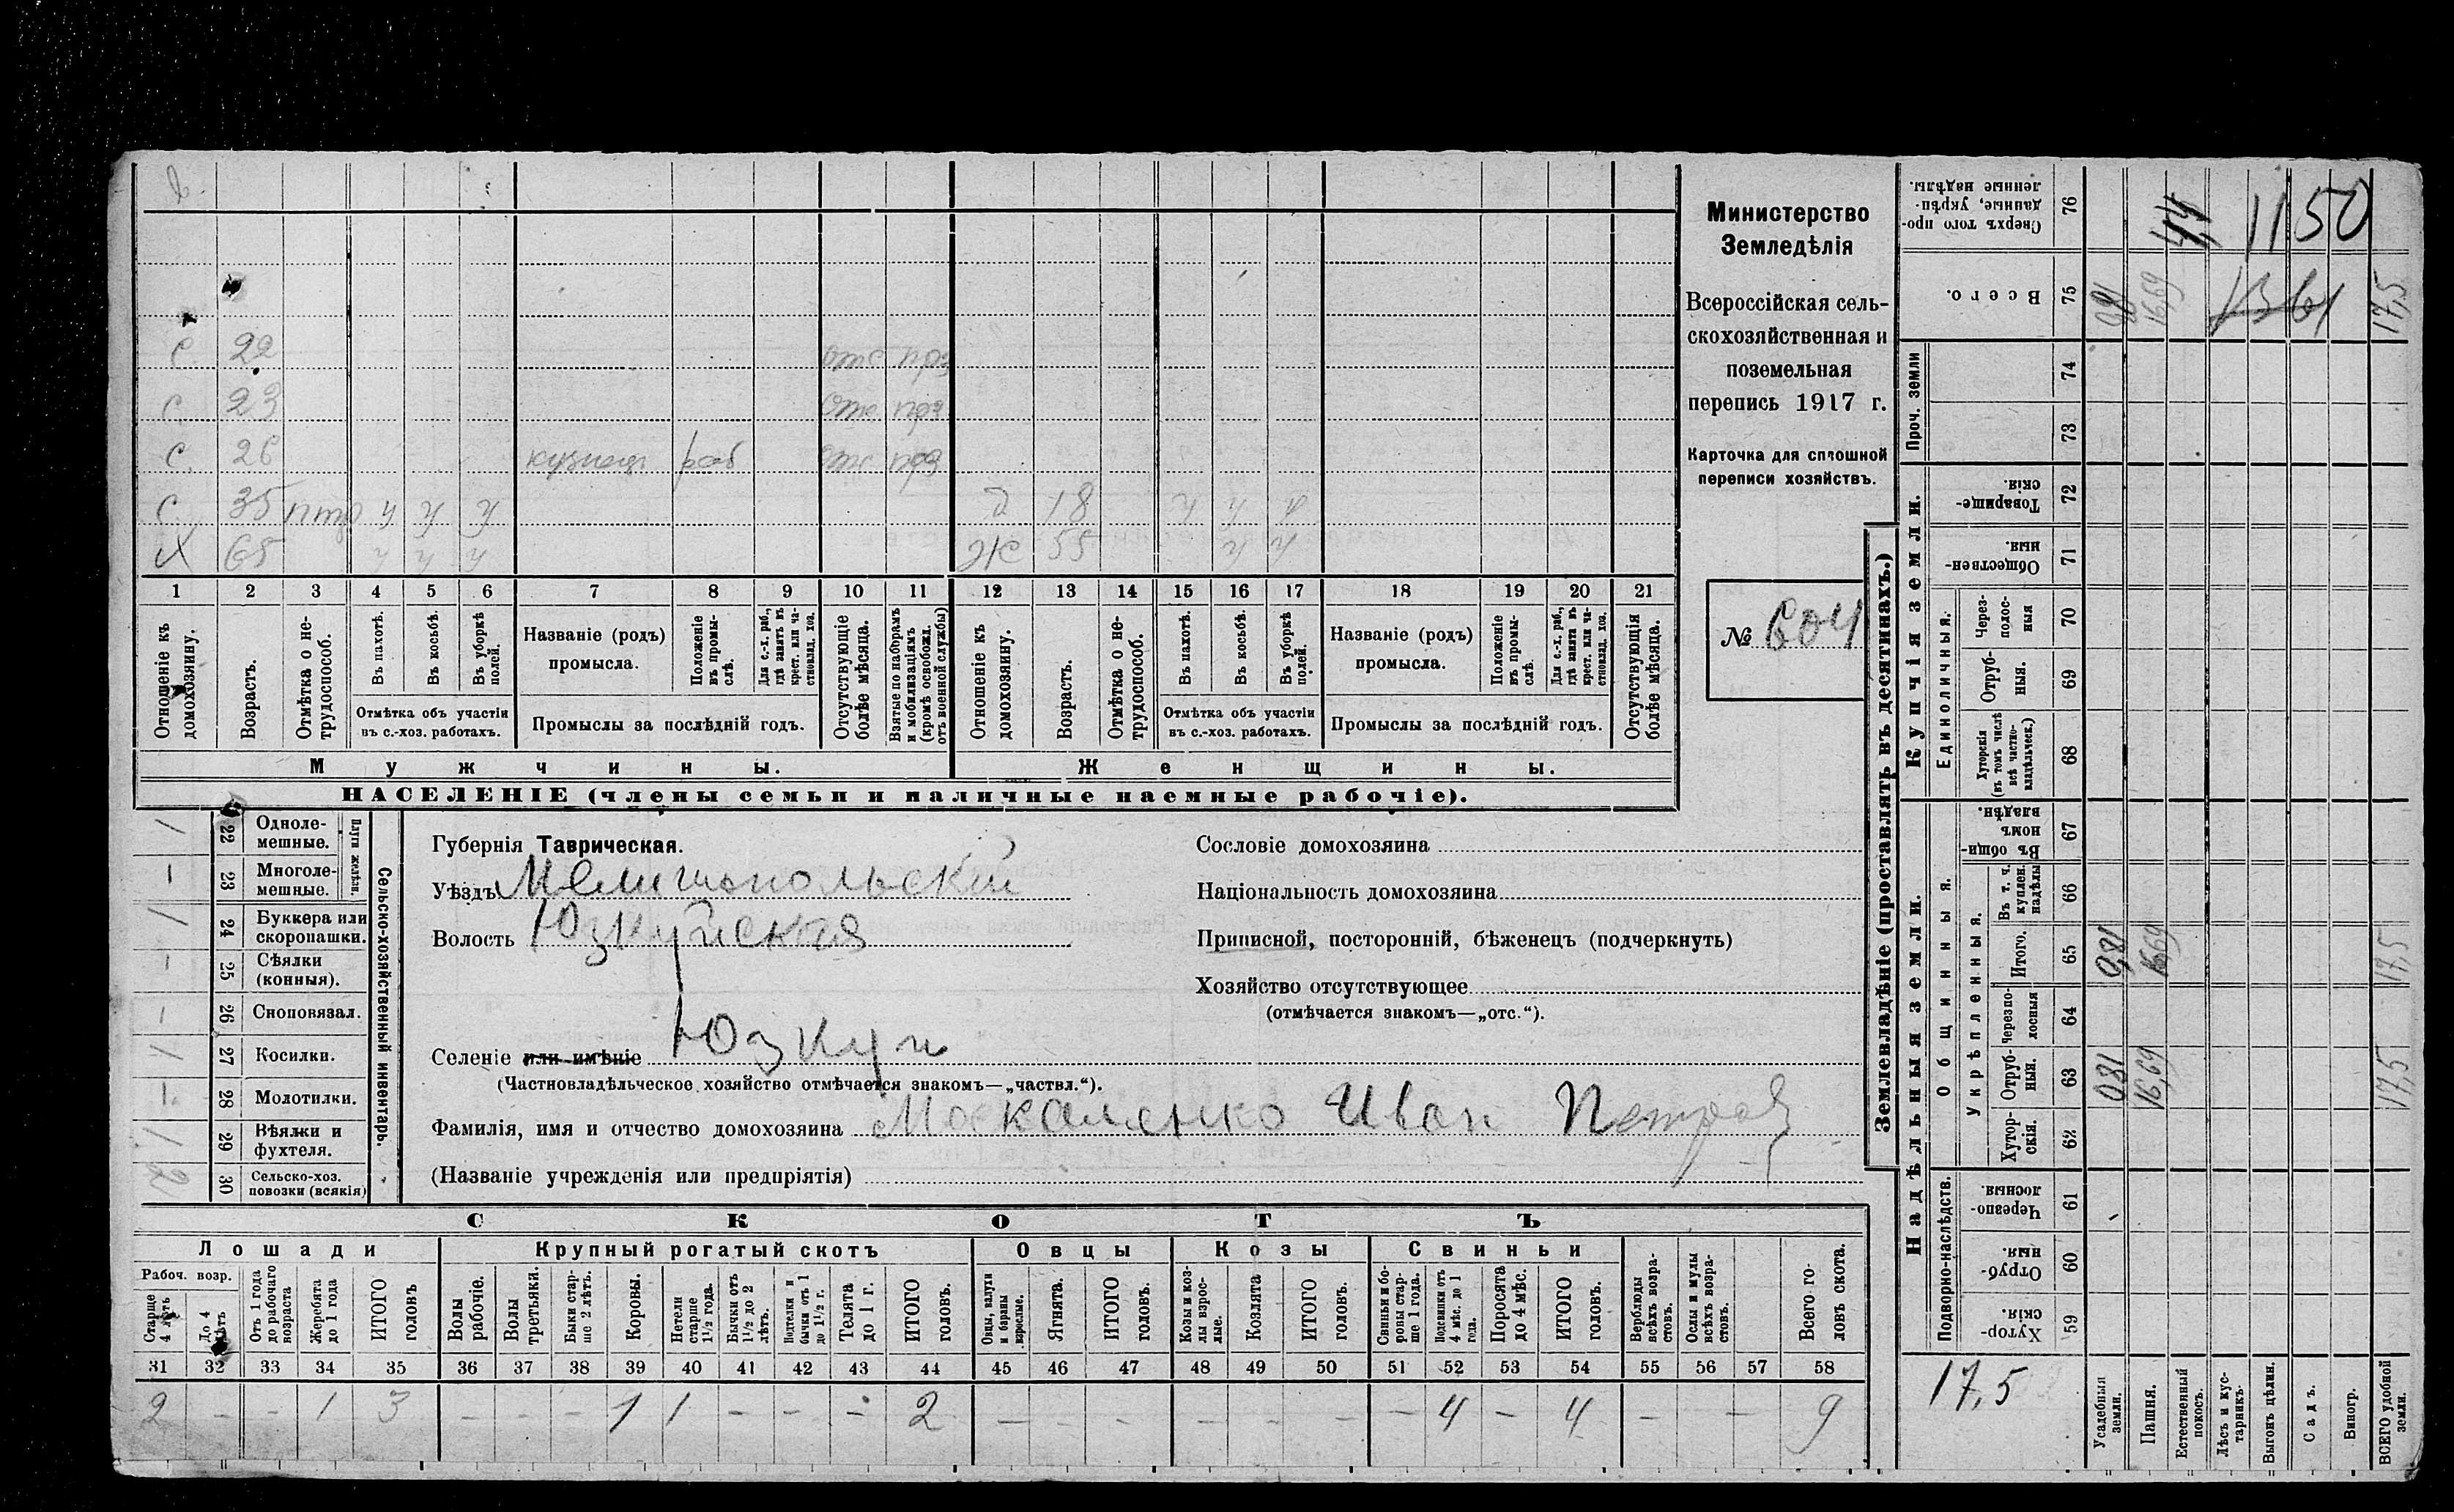 Министерство
Земледѣлія
Всероссійская сель-
скохозяйственная и
поземельная
перепись 1917 г.
Карточка для сплошной
переписи хозяйствъ.
№ 604
С 22
С 23
С. 26 кузнец раб
С 35
Х 65
Ж 55
18
1 2 3 4 5 6 7 8 9 10 11 12 13 14 15 16 17 18 19 20 21
Отношеніе къ домохозяину.
Возрастъ.
Отмѣтка о не-трудоспособ.
Въ пахотѣ.
Въ косьбѣ.
Въ уборкѣ полей.
Отмѣтка объ участіи
въ с.-хоз. работахъ.
Названіе (родъ)
промысла.
Положеніе въ промы-слѣ.
Для с.-х. раб., гдѣ занятъ въ крест. или ча-стновлад. хоз.
Промыслы за послѣдній годъ.
Отсутствующіе болѣе мѣсяца.
Взятые по наборамъ и мобилизаціямъ (кромѣ освобожд. отъ военной службы)
Отношеніе къ домохозяину.
Возрастъ.
Отмѣтка о не-трудоспособ.
Въ пахотѣ.
Въ косьбѣ.
Въ уборкѣ полей.
Отмѣтка объ участіи
въ с.-хоз. работахъ.
Названіе (родъ)
промысла.
Положеніе въ промы-слѣ.
Для с.-х. раб., гдѣ занята въ крест. или ча-стновлад. хоз.
Промыслы за послѣдній годъ.
Отсутствующія болѣе мѣсяца.
Мужчины.
Женщины.
НАСЕЛЕНІЕ (члены семьи и наличные наемные рабочіе).
Сельско-хозяйственный инвентарь.
Плуги желѣзн.
22 Одноле-мешные. /
23 Многоле-мешные. –
24 Буккера или скоропашки. /
25 Сѣялки (конныя). –
26 Сноповязал. –
27 Косилки. /
28 Молотилки. –
29 Вѣялки и фухтеля. /
30 Сельско-хоз. повозки (всякія) 2
Губернія Таврическая.
Уѣздъ Мелитопольскій
Волость Юзкуйская
Селеніе или имѣніе Юзкуи
(Частновладѣльческое хозяйство отмѣчается знакомъ—„частвл.“).
Фамилія, имя и отчество домохозяина Москаленко Иван Петров
(Названіе учрежденія или предпріятія)
Сословіе домохозяина
Національность домохозяина
Приписной, посторонній, бѣженецъ (подчеркнуть)
Хозяйство отсутствующее
(отмѣчается знакомъ—„отс.“).
СКОТЪ
Лошади
Крупный рогатый скотъ
Овцы
Козы
Свиньи
Рабоч. возр.
Старше 4 лѣтъ
До 4 лѣтъ
Отъ 1 года до рабочаго возраста
Жеребята до 1 года
ИТОГО головъ
Волы рабочіе.
Волы третьяки.
Быки стар-ше 2 лѣтъ.
Коровы.
Нетели старше 1½ года.
Бычки отъ 1½ до 2 лѣтъ.
Подтелки и бычки отъ 1 до 1½ г.
Телята до 1 г.
ИТОГО головъ.
Овцы, валухи и бараны взрослые.
Ягнята.
ИТОГО головъ.
Козы и коз-лы взрос-лые.
Козлята
ИТОГО головъ.
Свиньи и бо-ровы стар-ше 1 года.
Подсвинки отъ 4 мѣс. до 1 года.
Поросята до 4 мѣс.
ИТОГО головъ.
Верблюды всѣхъ возра-стовъ.
Ослы и мулы всѣхъ возра-стовъ.
Всего го-ловъ скота.
31 32 33 34 35 36 37 38 39 40 41 42 43 44 45 46 47 48 49 50 51 52 53 54 55 56 57 58
2 – – 1 3 – – – 1 1 – – – 2 – – – – – – – 4 – 4 – – 9
Землевладѣніе (проставлять въ десятинахъ.)
Надѣльныя земли.
Купчія земли.
Проч. земли
Подворно-наслѣдств.
Общинныя.
Укрѣпленныя.
Единоличныя.
Сверхъ того про-данные, укрѣп-ленные надѣлы. 76 1150
Всего. 75 0,81 16,69 1361 17,5
74
73
Товарище-скія. 72
Обществен-ныя. 71
Через-полос-ныя 70
Отруб-ныя. 69
Хуторскія (въ томъ числѣ всѣ частно-владѣльческ.) 68
Въ общи-номъ владѣн. 67
Въ т. ч. куплен. надѣлы 66
Итого. 65 0,81 16,69 17,5
Черезпо-лосныя 64
Отруб-ныя. 63 0,81 16,69 17,5
Хутор-скія. 62
Черезпо-лосныя. 61
Отруб-ныя. 60
Хутор-скія. 59
17,5
Усадебныя земли.
Пашня.
Естественный покосъ.
Лѣсъ и кус-тарникъ.
Выгонъ цѣлин.
Садъ.
Виногр.
ВСЕГО удобной земли.